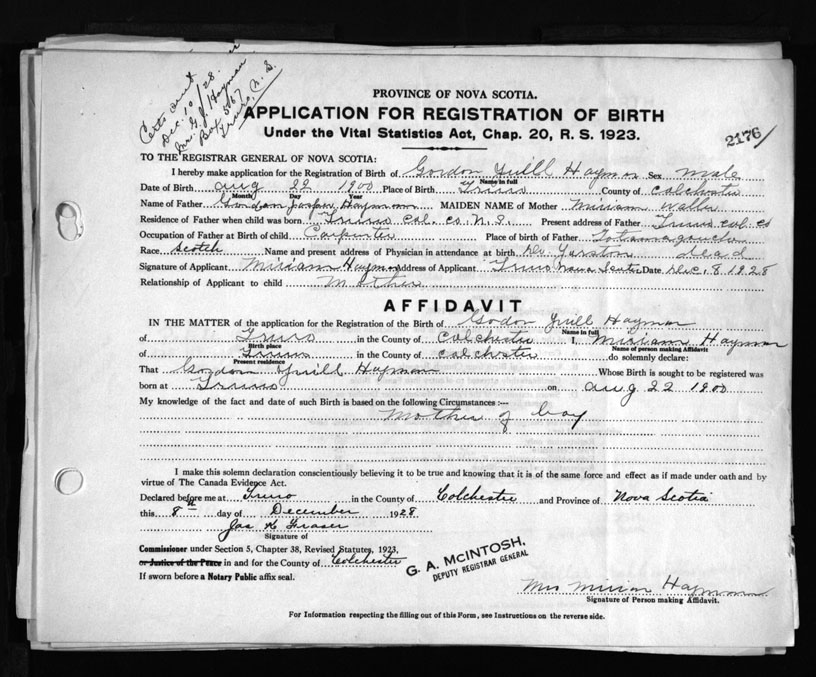 Certs sent
Dec. 10/28.
Mrs. G. J. Hayman
Box 567
Truro, N. S.
PROVINCE OF NOVA SCOTIA.
APPLICATION FOR REGISTRATION OF BIRTH
Under the Vital Statistics Act, Chap. 20, R. S. 1923.
2176/
TO THE REGISTRAR GENERAL OF NOVA SCOTIA:
I hereby make application for the Registration of Birth of Gordon Yuill Hayman Sex Male
Name in full
Date of Birth aug 22 1900 Place of Birth Truro County of Colchester
Month Day Year
Name of Father Gordon Joseph Hayman MAIDEN NAME of Mother Miriam
Residence of Father when child was born Truro Col. Co. N. S. Present address of Father Truro Col. Co
Occupation of Father at Birth of child Carpenter Place of birth of Father
Race Scotch Name and present address of Physician in attendance at birth Dr. Yorston dead
Signature of Applicant Miriam Hayman Address of Applicant Truro Nova Scotia Date Dec. 8 1928
Relationship of Applicant to child Mother
AFFIDAVIT
IN THE MATTER of the application for the Registration of the Birth of Godon Yuill Hayman
Name in full
of Truro in the County of Colchester I, Miriam Hayman
Birth place Name of person making Affidavit
of Truro in the County of Colchester do solemnly declare:
Present residence
That Gordon Yuill Hayman Whose Birth is sought to be registered was
born at Truro on aug 22 1900
My knowledge of the fact and date of such Birth is based on the following Circumstances :—
Mother of boy
I make this solemn declaration conscientiously believing it to be true and knowing that it is of the same force and effect as if made under oath and by
virtue of The Canada Evidence Act.
Declared before me at Truro in the County of Colchester and Province of Nova Scotia
this 8th day of December 1928
Jas K Fraser
Signature of
Commissioner under Section 5, Chapter 38, Revised Statutes, 1923,
or Justice of the Peace in and for the County of Colchester
If sworn before a Notary Public affix seal.
G. A. McINTOSH,
DEPUTY REGISTRAR GENERAL
Mrs Miriam Hayman
Signature of Person making Affidavit.
For Information respecting the filling out of this Form, see Instructions on the reverse side.